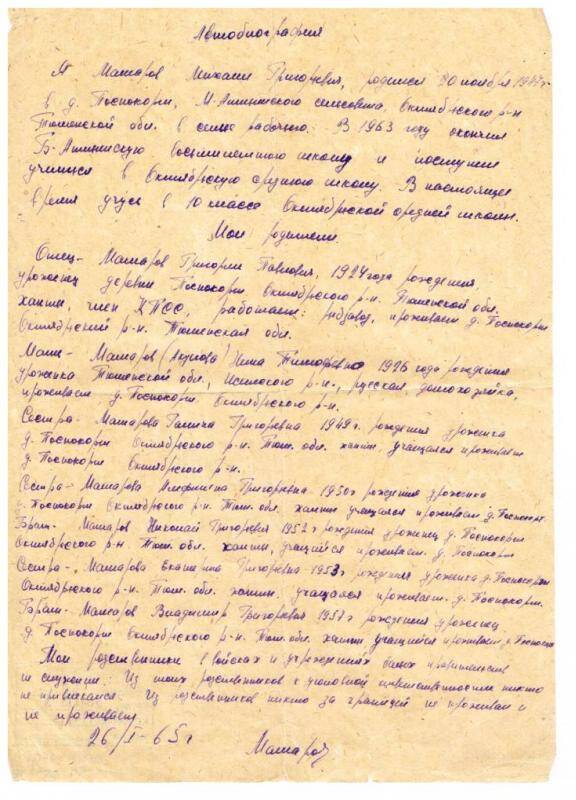 Автобиография
Я Матаров Михаил Григорьевич, родился 20 ноября 1947г
в д. Поснокорт, М-Атлымского сельсовета, Октябрьского р-н
Тюменской обл. в семье рабочего. В 1963 году окончил
Б-Атлымскую восьмилетнюю школу и поступил
учиться в Октябрьскую среднюю школу. В настоящее
время учусь в 10 классе Октябрьской средней школы.
Мои родители.
Отец - Матаров Григорий Павлович, 1924 года рождения,
уроженец деревни Поснокорт Октябрьского р-н. Тюменской обл.
ханты, член КПСС, работает: рыбзавод, проживает д. Поснокорт
Октябрьский р-н. Тюменская обл.
Мать - Матаров ( Нина Тимофеевна 1926 года рождения
уроженка Тюменской обл., р-н., русская, домохозяйка,
проживает д. Поснокорт. Октябрьского р-н.
Сестра - Матарова Галина Григорьевна 1949г. рождения уроженка
д. Поснокорт Октябрьского р-н. Тюм. обл. ханты. учащаяся проживает
д. Поснокорт Октябрьского р-н.
Сестра - Матарова Григорьевна 1950г рождения уроженка
д. Поснокорт Октябрьского р-н. Тюм. обл. ханты учащаяся проживает д. Поснокорт.
Брат - Матаров Николай Григорьевич 1952г рождения уроженец д. Поснокорт
Октябрьского р-н Тюм. обл. ханты, учащийся проживает. д. Поснокорт
Сестра -, Матарова Екатерина Григорьевна 1953г рождения уроженка д. Поснокорт
Октябрьского р-н. Тюм. обл. ханты. учащаяся проживает. д. Поснокорт.
Брат - Матаров Владимир Григорьевич 1957г рождения уроженец
д. Поснокорт Октябрьского р-н. Тюм. обл. ханты учащийся проживает д. Поснокорт
Мои родственники в войсках и учреждениях белых правительств
не служили. Из моих родственников к уголовной ответственности никто
не привлекался. Из родственников никто за границей не проживал и
не проживает.
26/I-65г Матаров